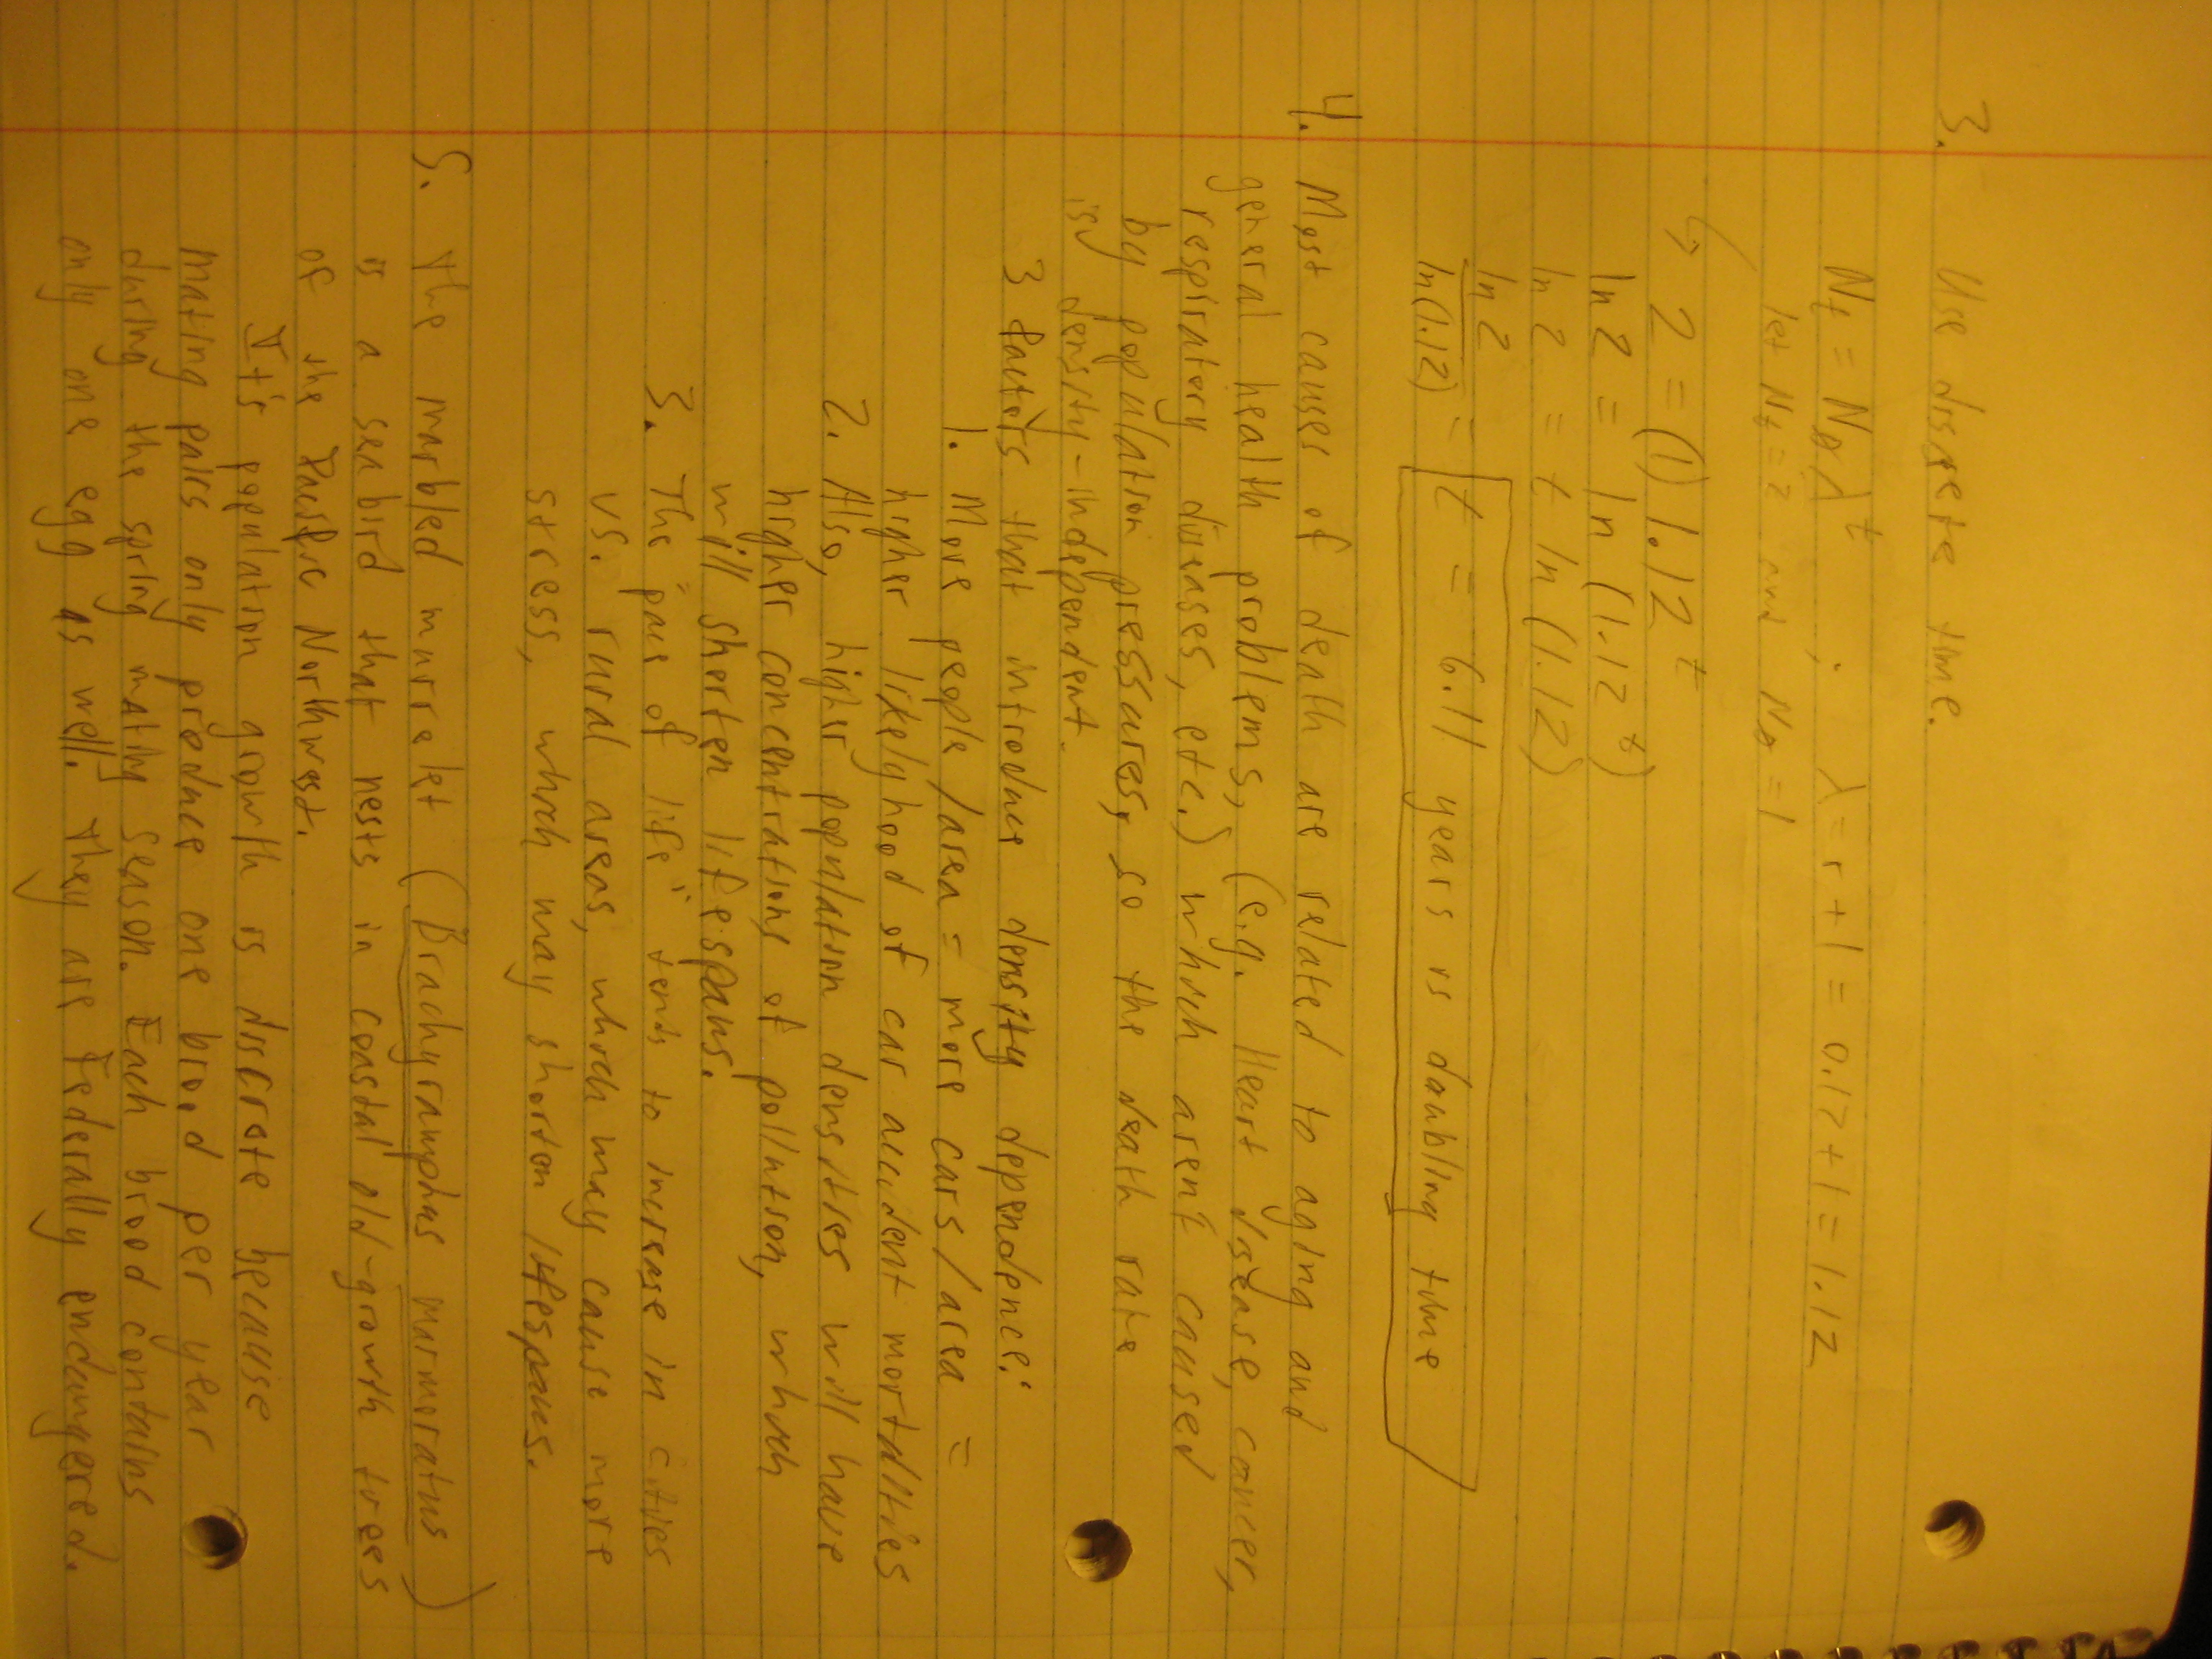 3. Use discrete time.
Nt = N0 λ^t ; λ = r + 1 = 0.12 + 1 = 1.12
let Nt = 2 and N0 = 1
↳ 2 = (1) 1.12^t
ln 2 = ln (1.12^t)
ln 2 = t ln (1.12)
ln 2 / ln(1.12) = t = 6.11 years is doubling time
4. Most causes of death are related to aging and
general health problems, (e.g. Heart disease, cancer,
respiratory diseases, etc.) which aren't caused
by population pressures, so the death rate
is density-independent.
3 factors that introduce density dependence:
1. More people/area = more cars/area =
higher likelyhood of car accident mortalities
2. Also, higher population densities will have
higher concentrations of pollution, which
will shorten lifespans.
3. The "pace of life" tends to increase in cities
vs. rural areas, which may cause more
stress, which may shorten lifespans.
5. The marbled murrelet (Brachyramphus marmoratus)
is a seabird that nests in coastal old-growth trees
of the Pacific Northwest.
It's population growth is discrete because
mating pairs only produce one brood per year
during the spring mating season. Each brood contains
only one egg as well. They are Federally endangered.